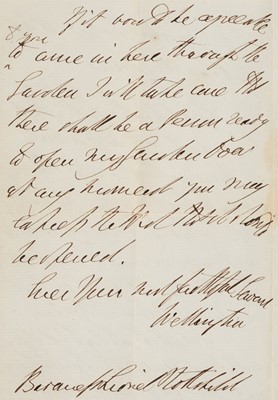 If it would be agreeable
to you
to come in here through the
Garden I will take care that
there shall be a Person ready
to open my Garden Door
at any moment you may
be opened.
Ever Your most faithful Servant
Wellington
Baroness Lionel Rothschild